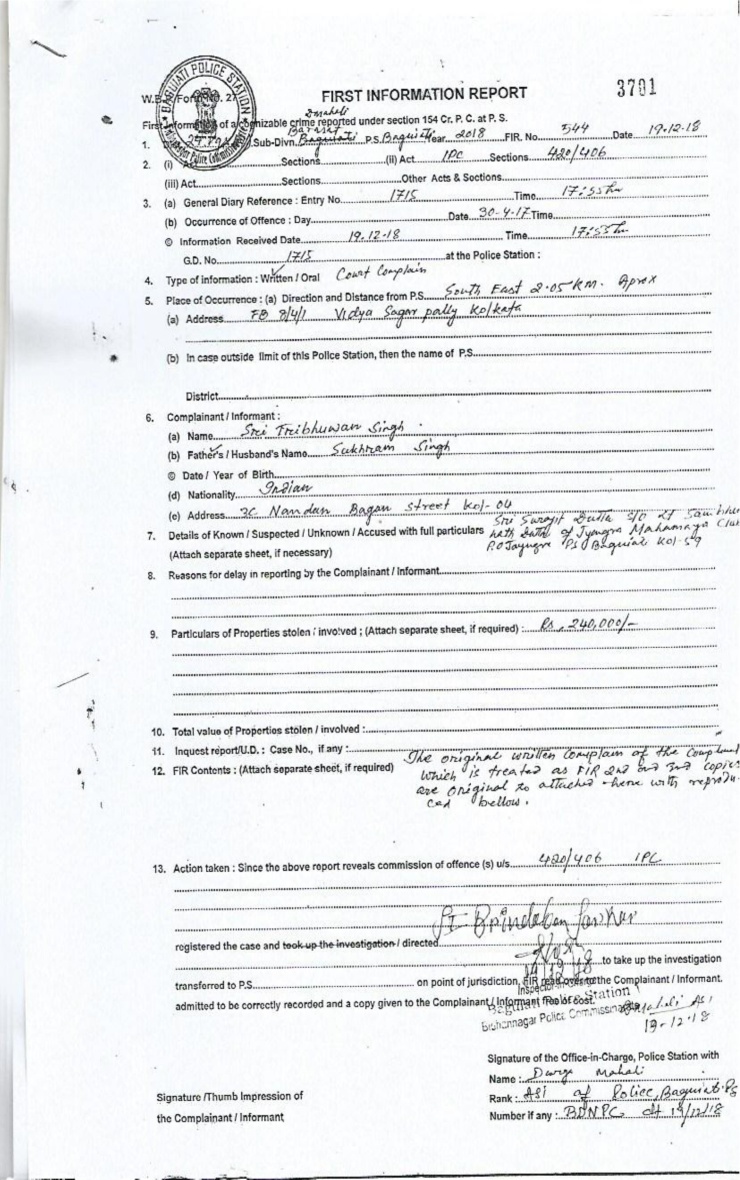 BAGUIATI POLICE STATION
3701
W.B. Form No. 27
FIRST INFORMATION REPORT
First Information of a cognizable crime reported under section 154 Cr. P. C. at P. S.
Dmahali
1. Sub-Divn. Barasat Baguiati P.S. Baguiati Year 2018 FIR. No. 544 Date 19-12-18
2. (i) Act Sections (ii) Act IPC Sections 420/406
(iii) Act Sections Other Acts & Sections
3. (a) General Diary Reference : Entry No. 1715 Time 17:55 hr
(b) Occurrence of Offence : Day Date 30-4-17 Time
© Information Received Date 19.12.18 Time 17:55 hr
G.D. No. 1715 at the Police Station :
4. Type of information : Written / Oral Court Complain
5. Place of Occurrence : (a) Direction and Distance from P.S. South East 2.05 KM. Aprox
(a) Address FB 8/4/1 Vidya Sagar pally Kolkata
(b) In case outside limit of this Police Station, then the name of P.S.
District
6. Complainant / Informant :
(a) Name Sri Tribhuwan Singh
(b) Father's / Husband's Name Sukhram Singh
© Date / Year of Birth
(d) Nationality Indian
(e) Address 3C Nandan Bagan Street Kol-04
7. Details of Known / Suspected / Unknown / Accused with full particulars Sri Surojit Dutta S/O Lt
(Attach separate sheet, if necessary) nath Dutta of Jyangra Mahamaya Club
P.O Jayngra PS Baguiati Kol-59
8. Reasons for delay in reporting by the Complainant / Informant
9. Particulars of Properties stolen / involved ; (Attach separate sheet, if required) : Rs. 240,000/-
10. Total value of Properties stolen / involved :
11. Inquest report/U.D. : Case No., if any :
12. FIR Contents : (Attach separate sheet, if required) The original written complain of the
which is treated as FIR 2nd and 3rd copies
are original to attached here with reprodu-
ced bellow.
13. Action taken : Since the above report reveals commission of offence (s) u/s 420/406 IPC
SI Brindaban Sarkar
registered the case and took up the investigation / directed
to take up the investigation
transferred to P.S. on point of jurisdiction, FIR read over to the Complainant / Informant.
admitted to be correctly recorded and a copy given to the Complainant / Informant free of cost.
Inspector-in-Charge
Baguiati Police Station
Bidhannagar Police Commissionerate
DMahali ASI
19-12-18
Signature of the Office-in-Charge, Police Station with
Name : Durga Mahali
Rank : ASI of Police, Baguiati PS
Number if any : BDNPC dt 19/12/18
Signature /Thumb Impression of
the Complainant / Informant